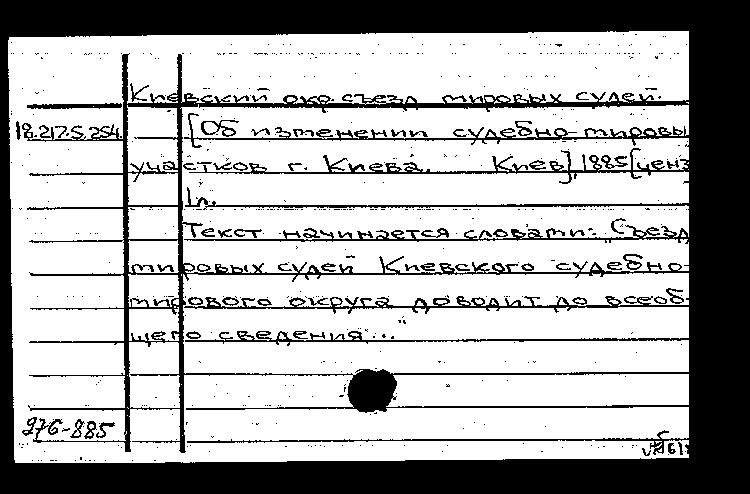 Киевский окр. съезд мировых судей.
18.217.5.254. [Об изменении судебно-мировы
участков г. Киева. Киев], 1885 [ценз
1л.
Текст начинается словами: "Съезд
мировых судей Киевского судебно-
мирового округа доводит до всеоб-
щего сведения..."
276-885